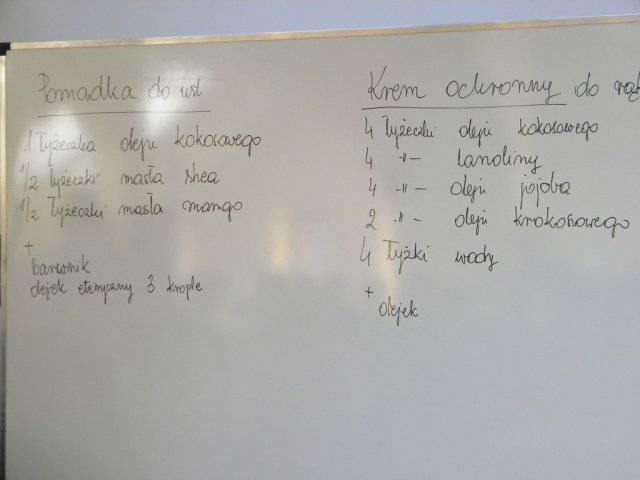 Pomadka do ust
1 łyżeczka oleju kokosowego
1/2 łyżeczki masła shea
1/2 łyżeczki masła mango
+
barwnik
olejek eteryczny 3 krople
Krem ochronny do rąk
4 łyżeczki oleju kokosowego
4 -"- lanoliny
4 -"- oleju jojoba
2 -"- oleju krokosowego
4 łyżki wody
+
olejek